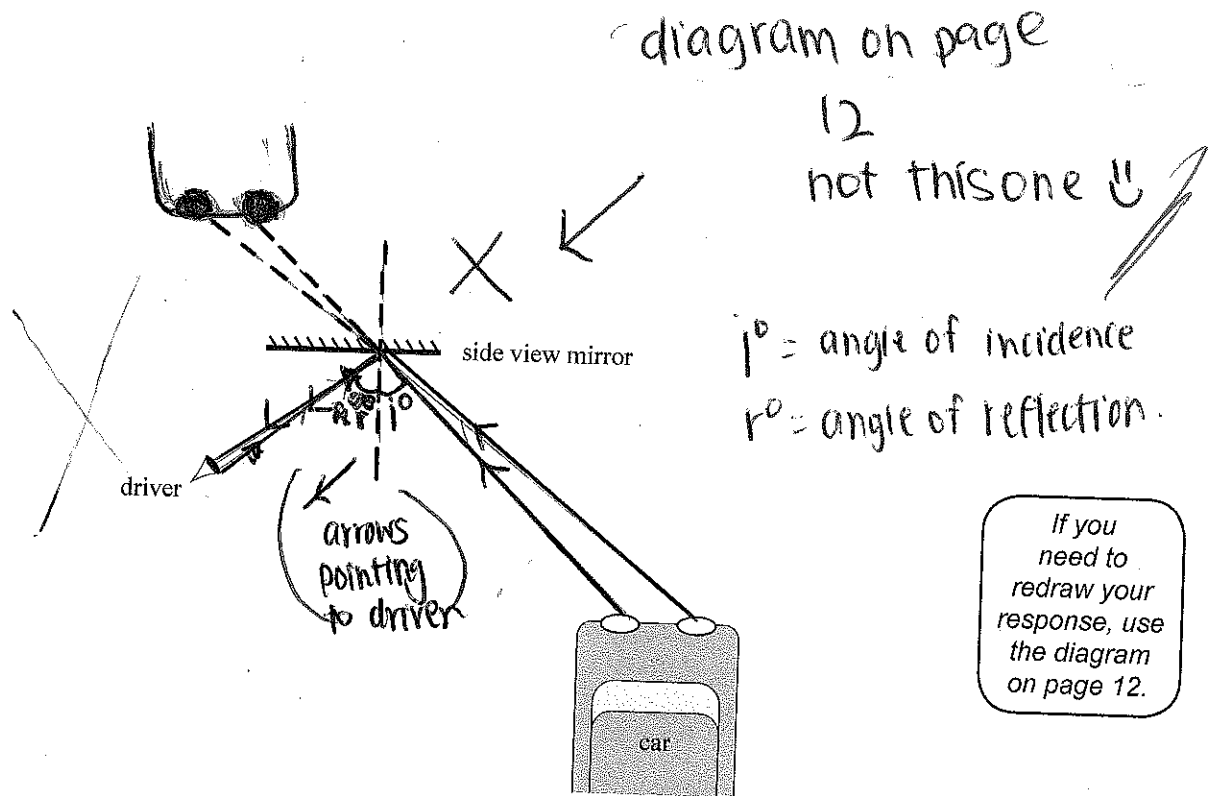 diagram on page
12
not this one
side view mirror
i° = angle of incidence
r° = angle of reflection.
r° i°
driver
arrows
pointing
to driver
If you
need to
redraw your
response, use
the diagram
on page 12.
car